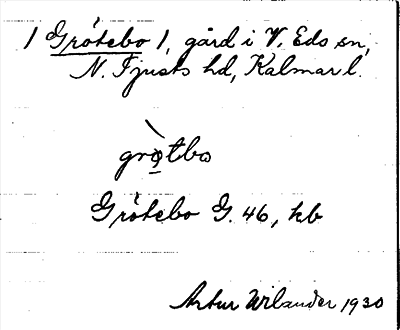 / Grötebo /, gård i V. Eds sn,
N. Tjusts hd, Kalmar l.
gròtbo
Grötebo G. 46, kb
Artur Wilander 1930